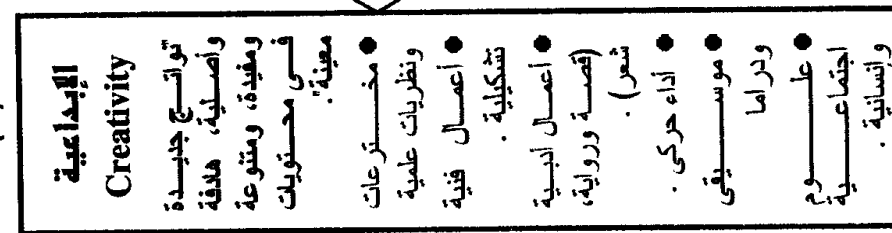 الإبداعية
Creativity
"نواتـج جديـدة
وأصـليـة، هادفة
ومفيدة، ومتنوعة
فـى محـتويات
معينة".
● مخـــترعات
ونظريات علمية
● أعمـال فنية
تشكيلية .
● أعمـال أدبيـة
(قصـة ورواية،
شعر) .
● أداء حركى .
● موســـيقى
ودراما
● علــــــوم
اجتماعـــــية
وإنسانية .